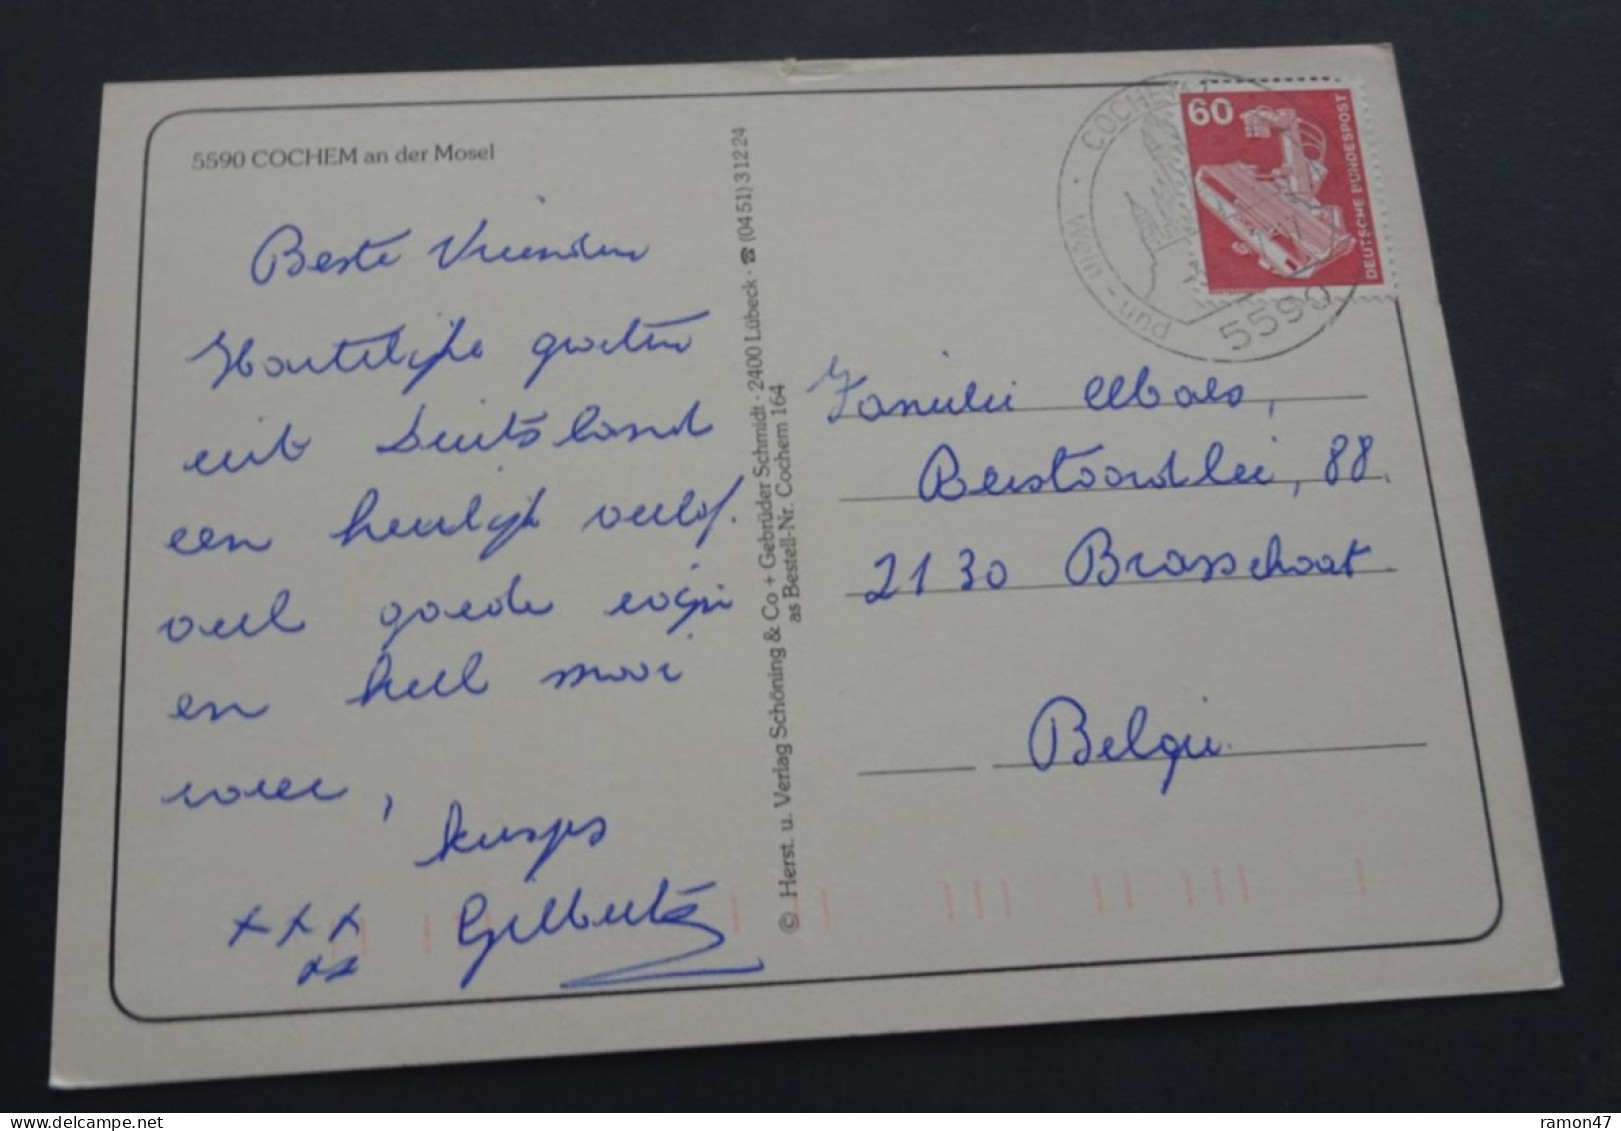 5590 COCHEM an der Mosel
Beste Vrienden
Hartelijke groeten
uit Duitsland
een heerlijk verlof.
veel goede wijn
en heel mooi
weer,
kusjes
xxx Gilberte
xx
© Herst. u. Verlag Schöning & Co + Gebrüder Schmidt · 2400 Lübeck · ☎ (0451) 31224
as Bestell-Nr. Cochem 164
COCHEM
Wein - und
5590
60
DEUTSCHE BUNDESPOST
Familie
88
2130 Brasschaat
België
ramon47